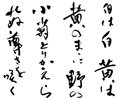 白は白 黄は
黄のまゝに 野の
小菊とりかへら
れぬ尊さを咲く